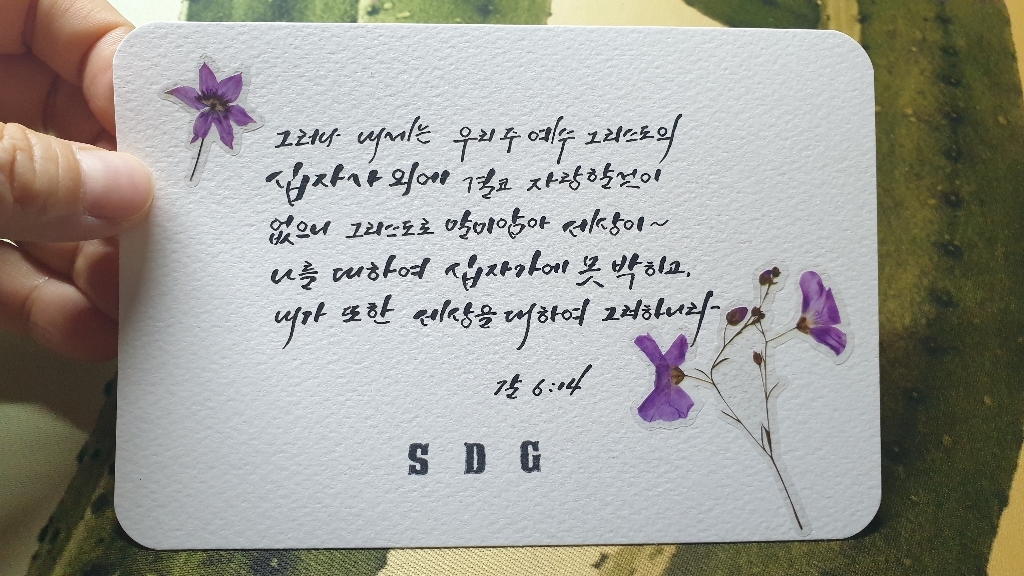 그러나 내게는 우리 주 예수 그리스도의
십자가 외에 결코 자랑할 것이
없으니 그리스도로 말미암아 세상이~
나를 대하여 십자가에 못 박히고,
내가 또한 세상을 대하여 그러하니라-
갈 6:14
S D G